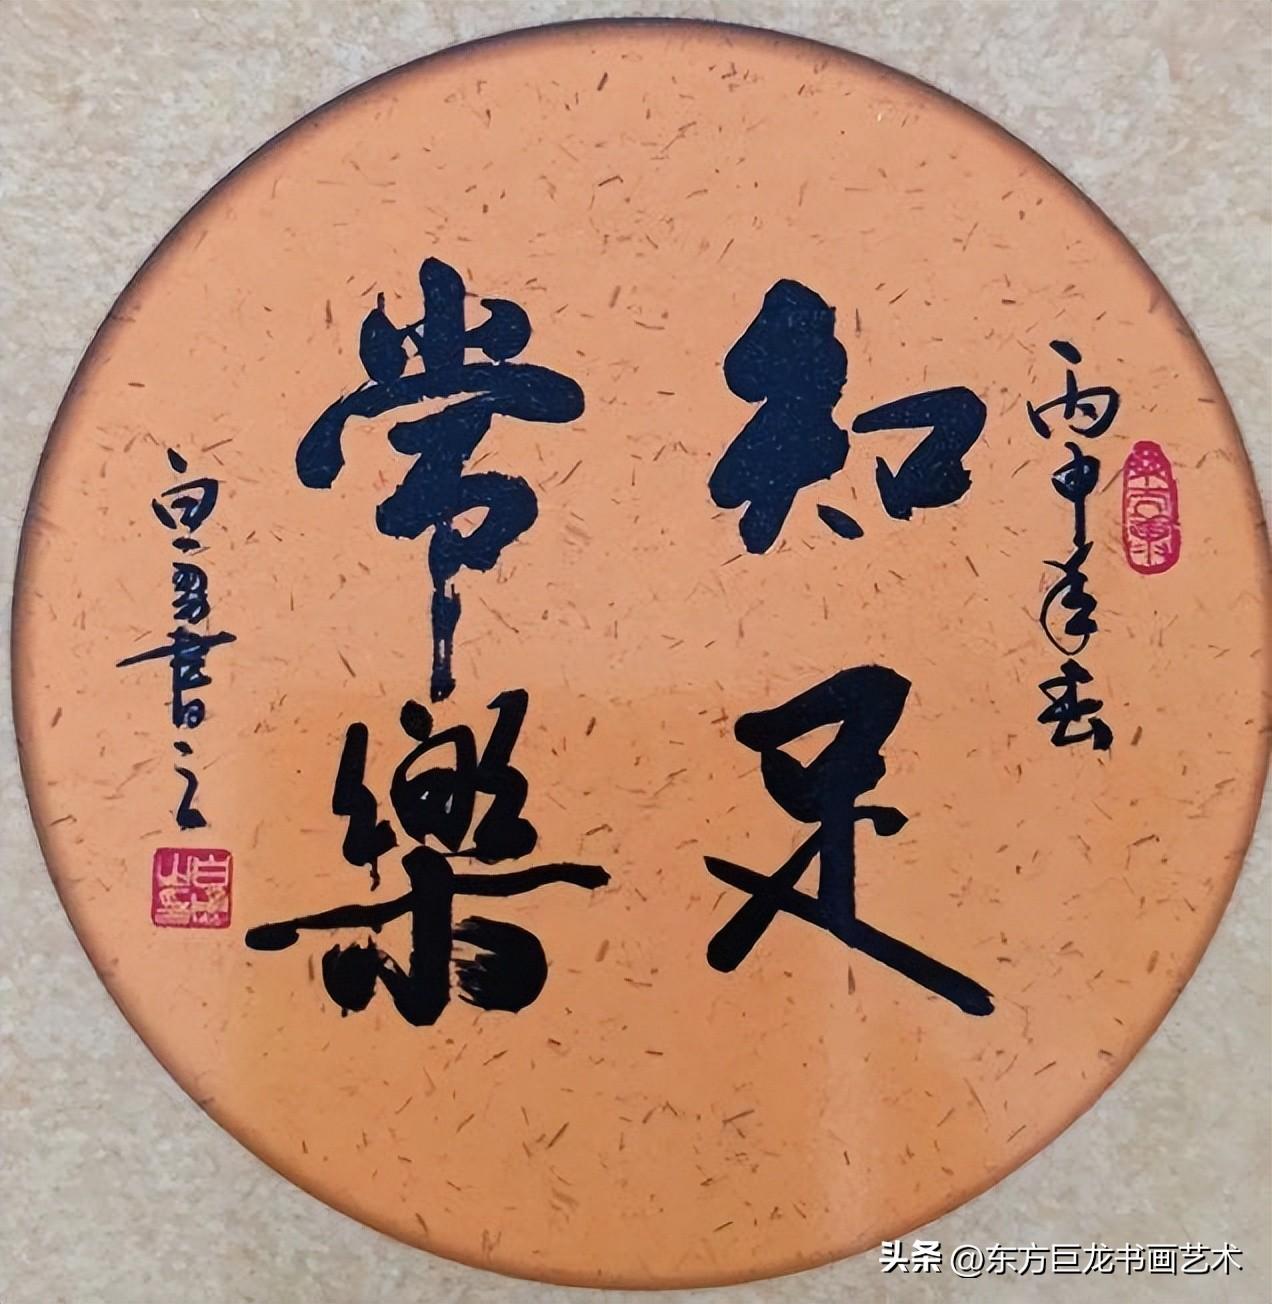 丙申年春
知足
常樂
白勇書之
头条 @东方巨龙书画艺术